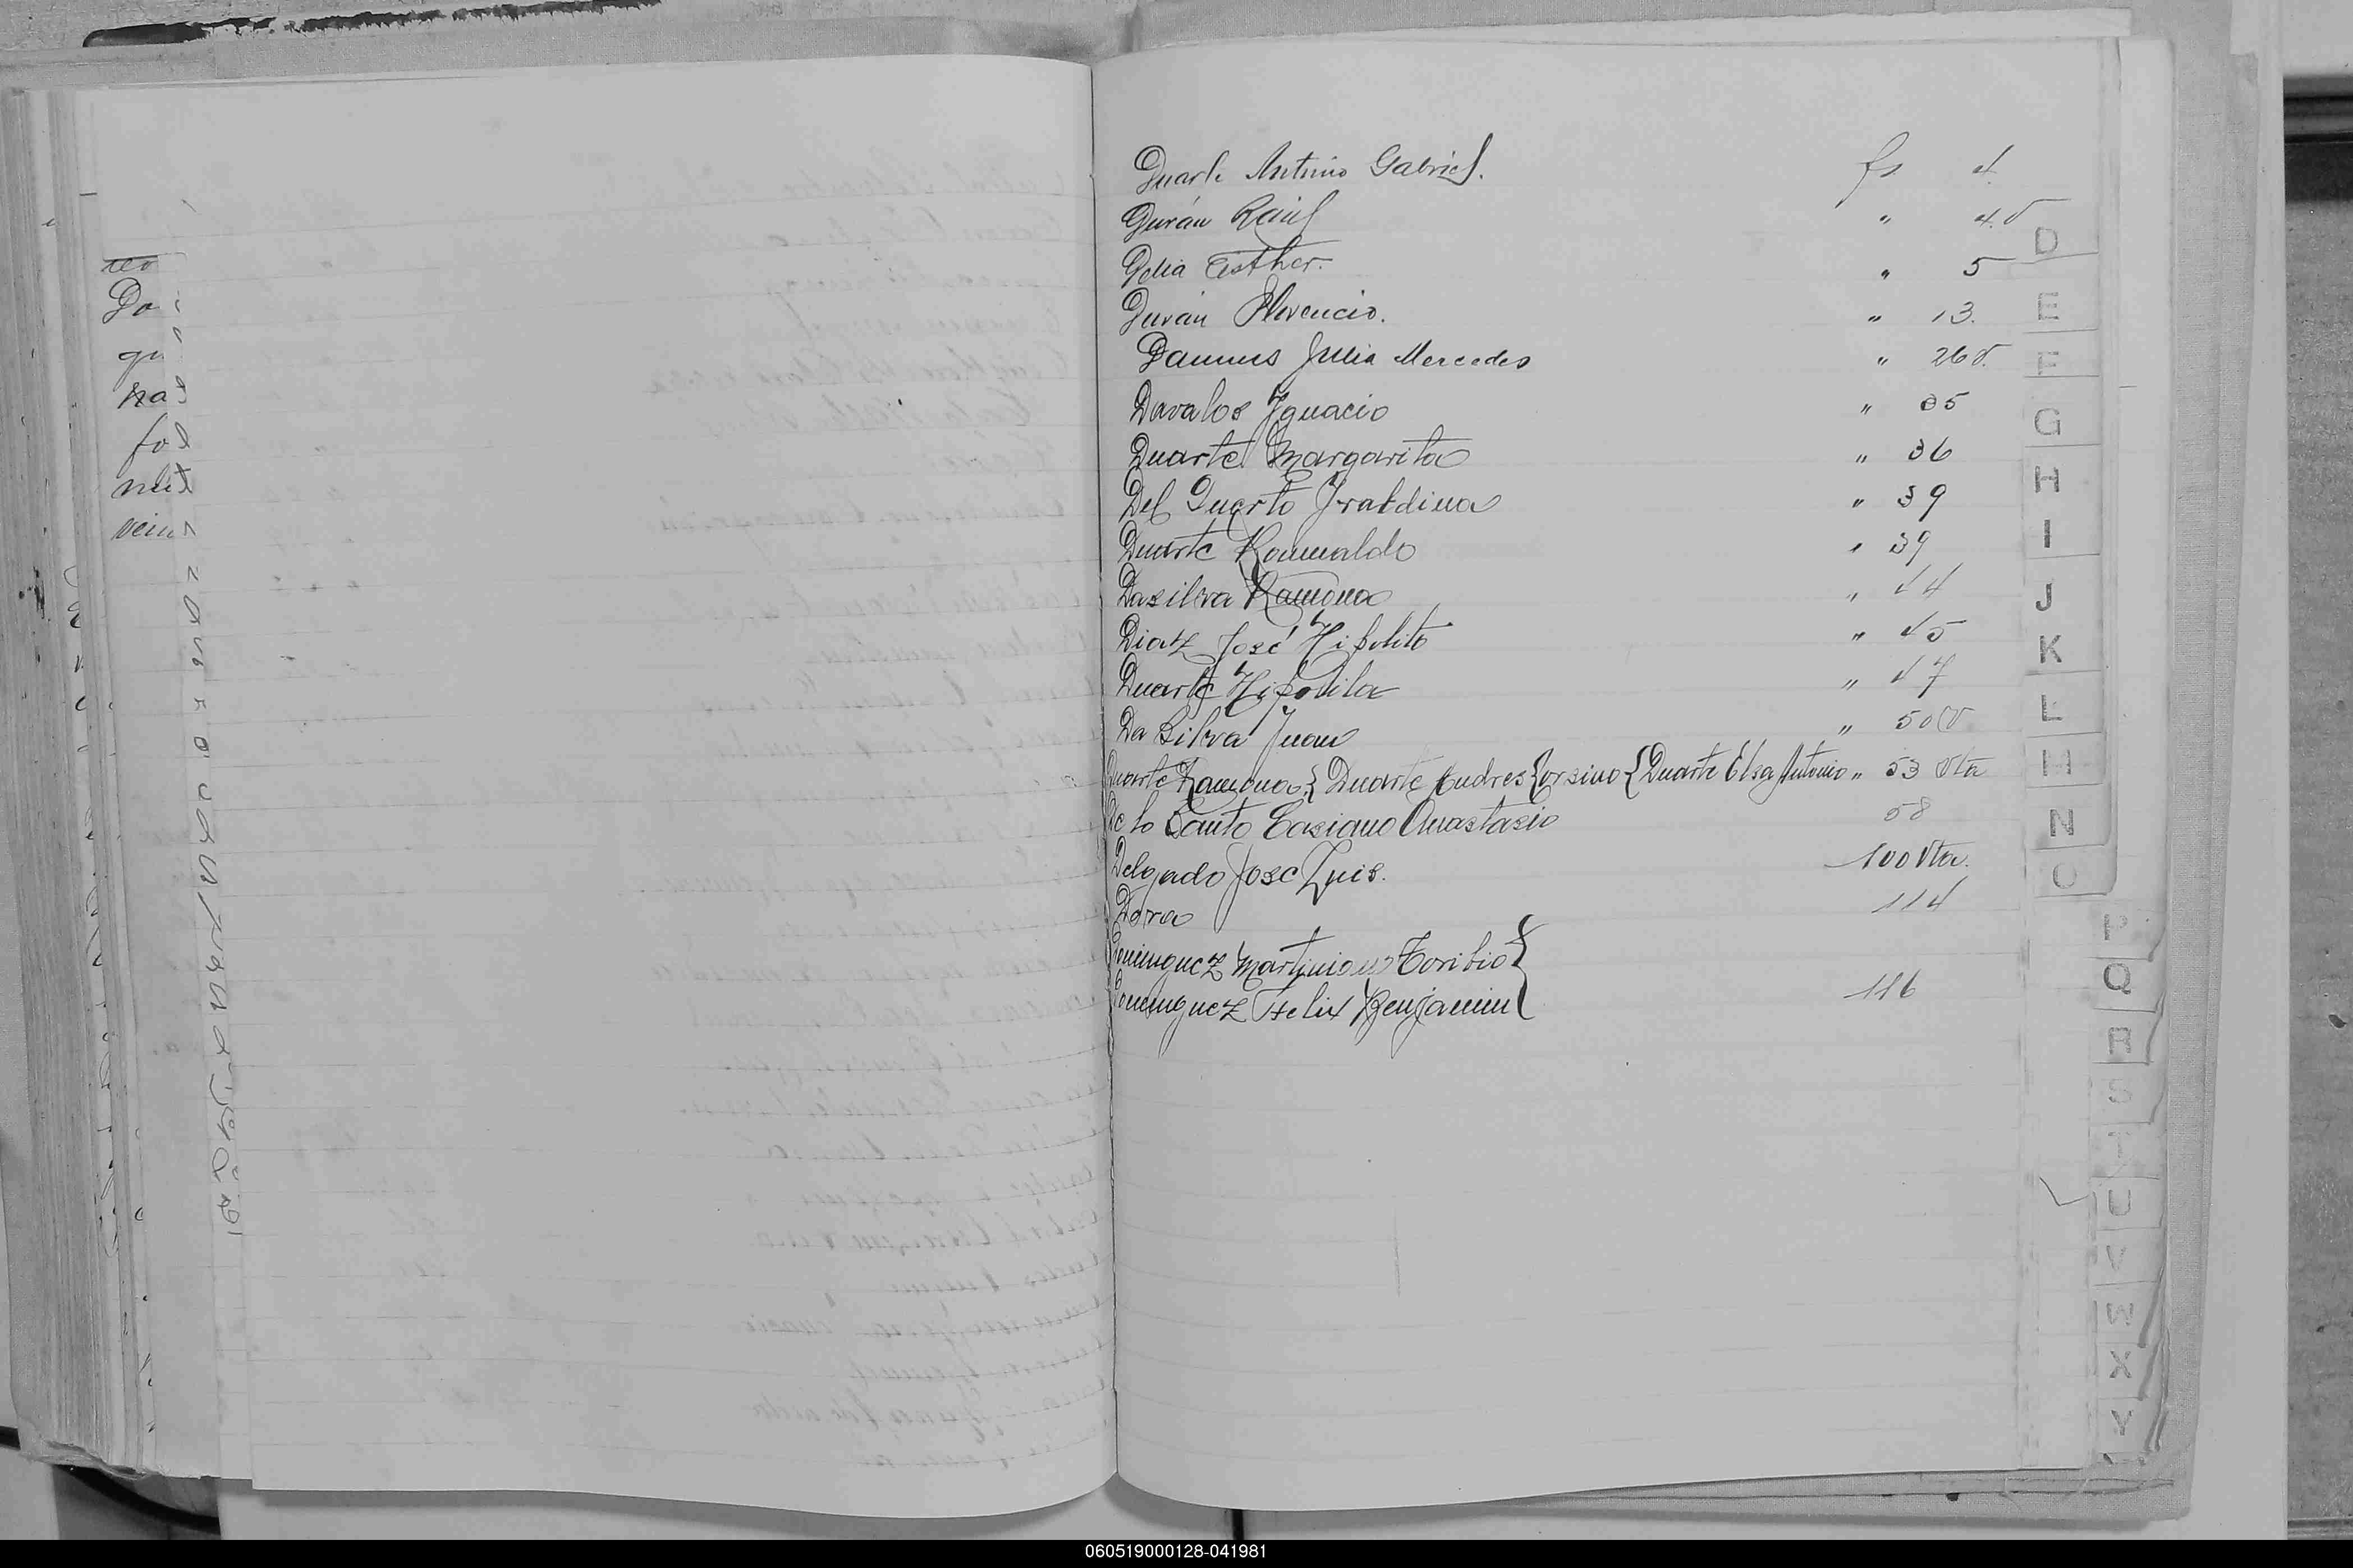 Duarte Antonio Gabriel. fs 4.
Durán Raúl " 4.v
Delia Esther. " 5
Durán Florencio. " 13.
Julia Mercedes " 26 v.
Davalos Ignacio " 35
Duarte Margarita " 36
Del Puerto Iraldina " 39
Duarte Romualdo " 39
Dasilva Ramona " 44
Diaz José Hipolito " 45
Duarte Hipolita " 47
Da Silva Juan " 50 v
Duarte Ramona { Duarte Andres Corsino { Duarte Elsa Antonio " 53 vta
De lo Santo Casiano Anastasio 58
Delgado Jose Luis. 100 vta.
Dora 114
Dominguez Martiniano Toribio }
Dominguez Felix Benjamin } 116
D
E
F
G
H
I
J
K
L
M
N
O
P
Q
R
S
T
U
V
W
X
Y
060519000128-041981